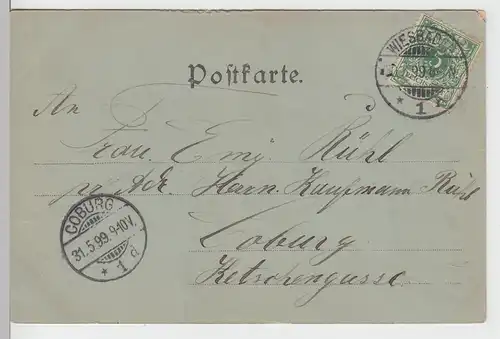 WIESBADEN
5.99.
* 1
Postkarte.
An
Frau Emy Rühl
pr. Adr. Herrn Kaufmann Rühl
Coburg
Ketschengasse
COBURG
31.5.99.9-10V.
* 1 d